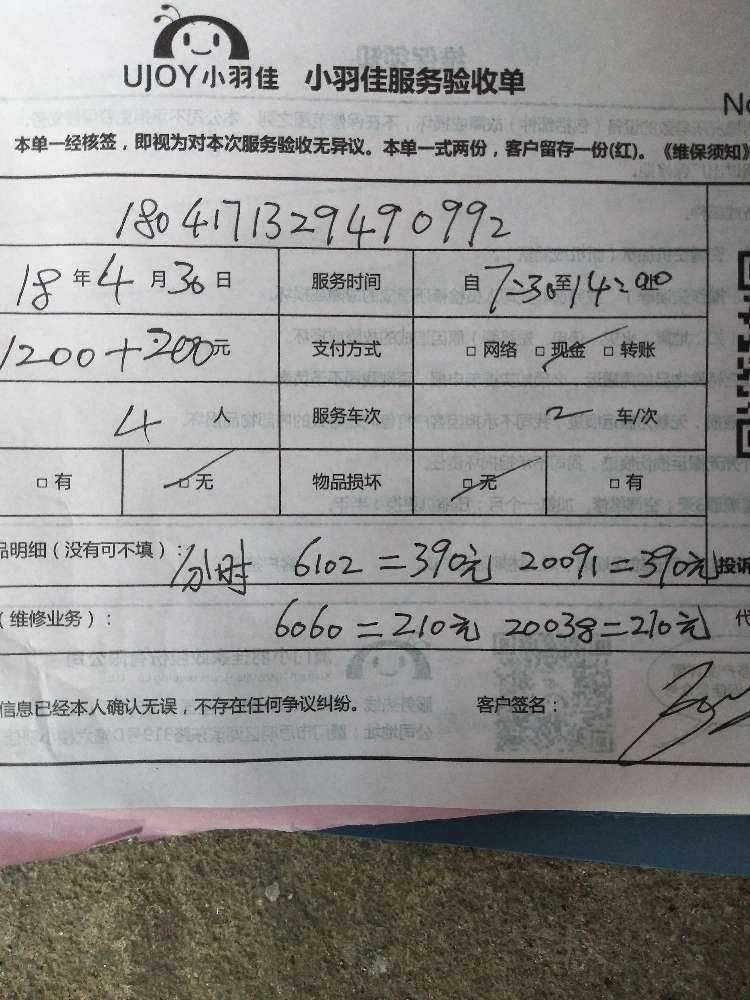 UJOY小羽佳 小羽佳服务验收单
No
本单一经核签，即视为对本次服务验收无异议。本单一式两份，客户留存一份(红)。《维保须知》
1804171329490992
18年4月30日 服务时间 自7:30至14:00
1200+200元 支付方式 □ 网络 □ 现金 □ 转账
4人 服务车次 2 车/次
□ 有 □ 无 物品损坏 □ 无 □ 有
品明细（没有可不填）： 分时 6102=390元 20091=390元 投诉
（维修业务）： 6060=210元 20038=210元 代
信息已经本人确认无误，不存在任何争议纠纷。 客户签名：